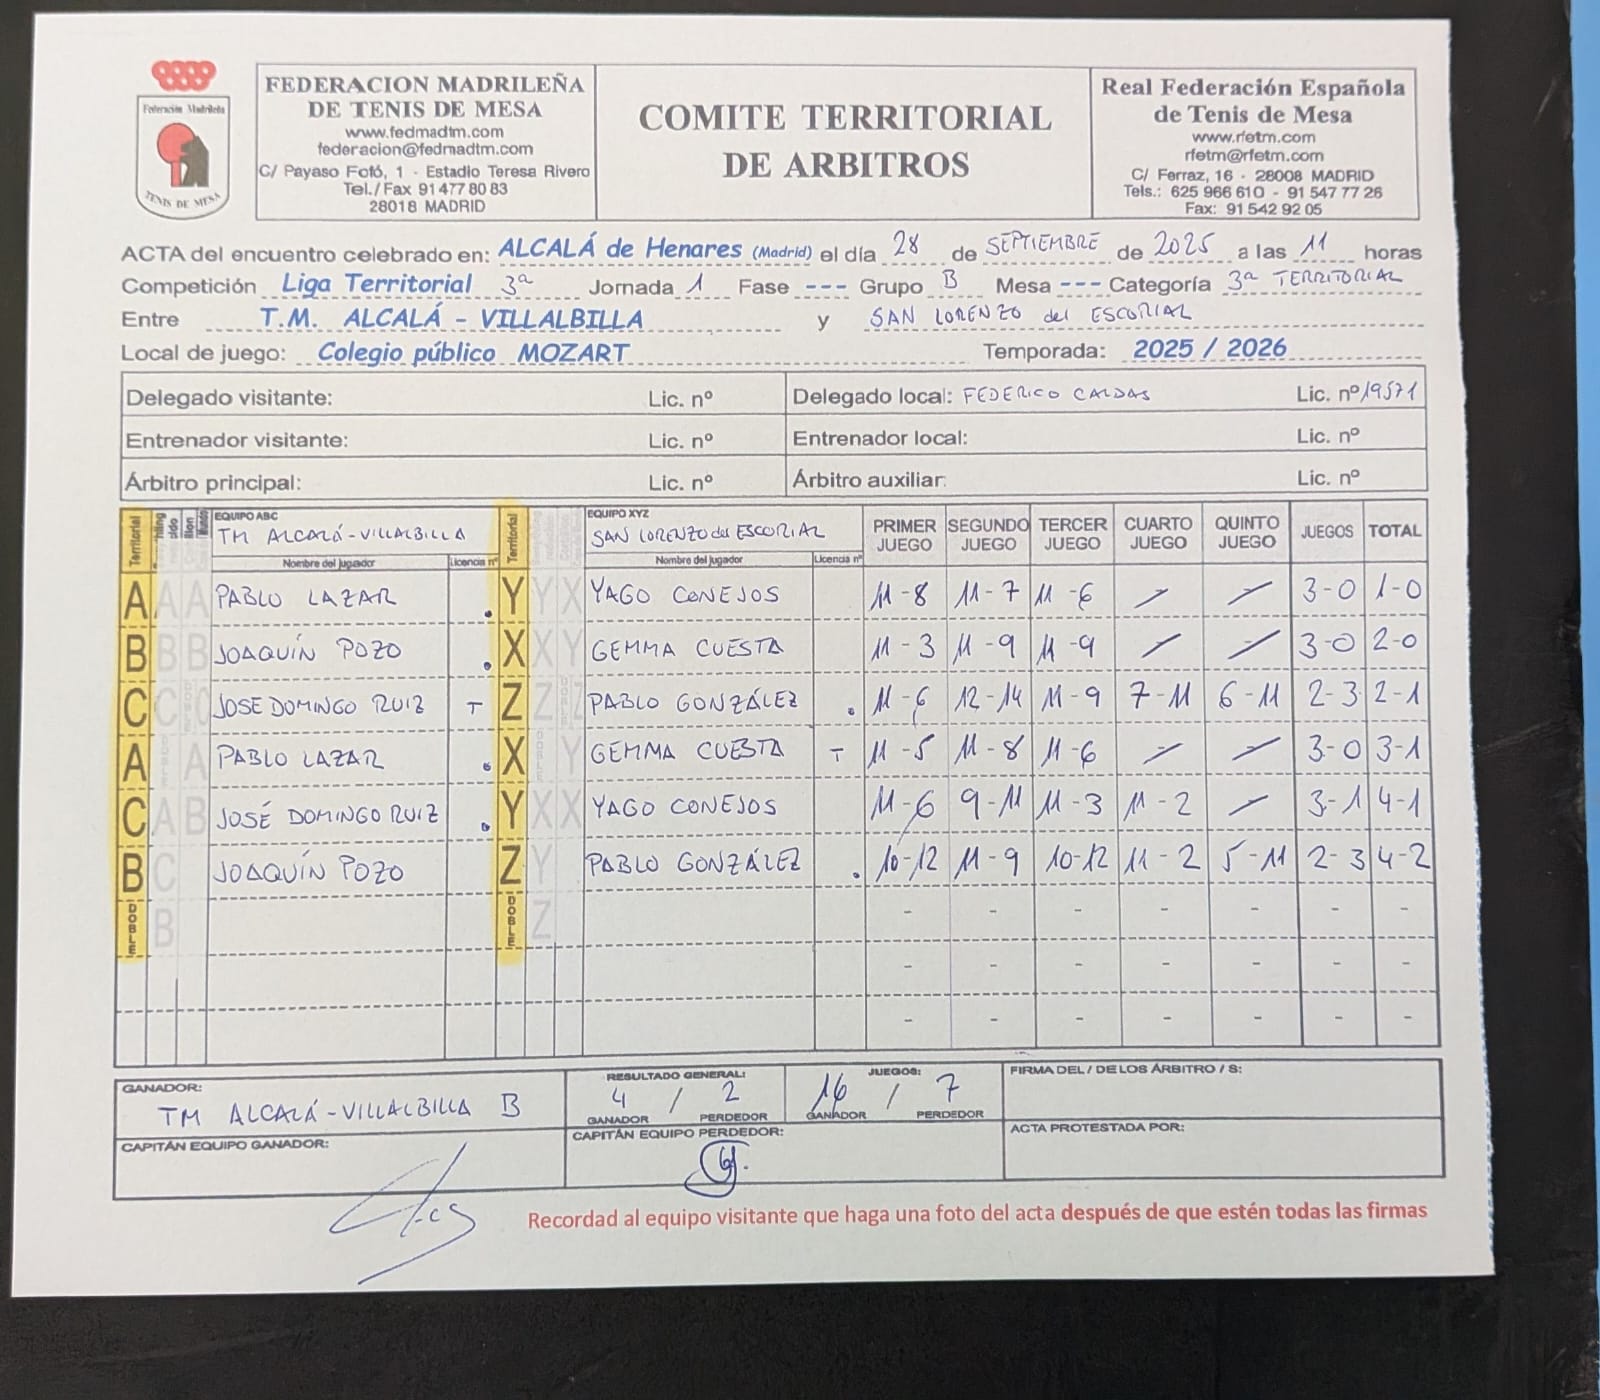 Federación Madrileña
TENIS DE MESA
FEDERACION MADRILEÑA
DE TENIS DE MESA
www.fedmadtm.com
federacion@fedmadtm.com
C/ Payaso Fofó, 1 - Estadio Teresa Rivero
Tel./Fax 91 477 80 83
28018 MADRID
COMITE TERRITORIAL
DE ARBITROS
Real Federación Española
de Tenis de Mesa
www.rfetm.com
rfetm@rfetm.com
C/ Ferraz, 16 - 28008 MADRID
Tels.: 625 966 610 - 91 547 77 26
Fax: 91 542 92 05
ACTA del encuentro celebrado en: ALCALÁ de Henares (Madrid) el día 28 de SEPTIEMBRE de 2025 a las 11 horas
Competición Liga Territorial 3ª Jornada 1 Fase --- Grupo B Mesa --- Categoría 3ª TERRITORIAL
Entre T.M. ALCALÁ - VILLALBILLA y SAN LORENZO del ESCORIAL
Local de juego: Colegio público MOZART Temporada: 2025 / 2026
Delegado visitante: Lic. nº Delegado local: FEDERICO CALDAS Lic. nº 19571
Entrenador visitante: Lic. nº Entrenador local: Lic. nº
Árbitro principal: Lic. nº Árbitro auxiliar: Lic. nº
Territorial EQUIPO ABC Territorial EQUIPO XYZ
TM ALCALÁ-VILLALBILLA SAN LORENZO del ESCORIAL PRIMER JUEGO SEGUNDO JUEGO TERCER JUEGO CUARTO JUEGO QUINTO JUEGO JUEGOS TOTAL
Nombre del jugador Licencia nº Nombre del jugador Licencia nº
A A A PABLO LAZAR . Y Y X YAGO CONEJOS 11-8 11-7 11-6 / / 3-0 1-0
B B B JOAQUÍN POZO . X X Y GEMMA CUESTA 11-3 11-9 11-9 / / 3-0 2-0
C C C JOSE DOMINGO RUIZ T Z Z Z PABLO GONZÁLEZ . 11-6 12-14 11-9 7-11 6-11 2-3 2-1
A A PABLO LAZAR . X Y GEMMA CUESTA T 11-5 11-8 11-6 / / 3-0 3-1
C A B JOSÉ DOMINGO RUIZ . Y X X YAGO CONEJOS 11-6 9-11 11-3 11-2 / 3-1 4-1
B C JOAQUÍN POZO Z Y PABLO GONZÁLEZ . 10-12 11-9 10-12 11-2 5-11 2-3 4-2
DOBLE B DOBLE Z - - - - - - -
- - - - - - -
- - - - - - -
GANADOR: TM ALCALÁ-VILLALBILLA B
RESULTADO GENERAL: 4 / 2
GANADOR PERDEDOR
JUEGOS: 16 / 7
GANADOR PERDEDOR
FIRMA DEL / DE LOS ÁRBITRO / S:
CAPITÁN EQUIPO GANADOR:
CAPITÁN EQUIPO PERDEDOR:
ACTA PROTESTADA POR:
Recordad al equipo visitante que haga una foto del acta después de que estén todas las firmas